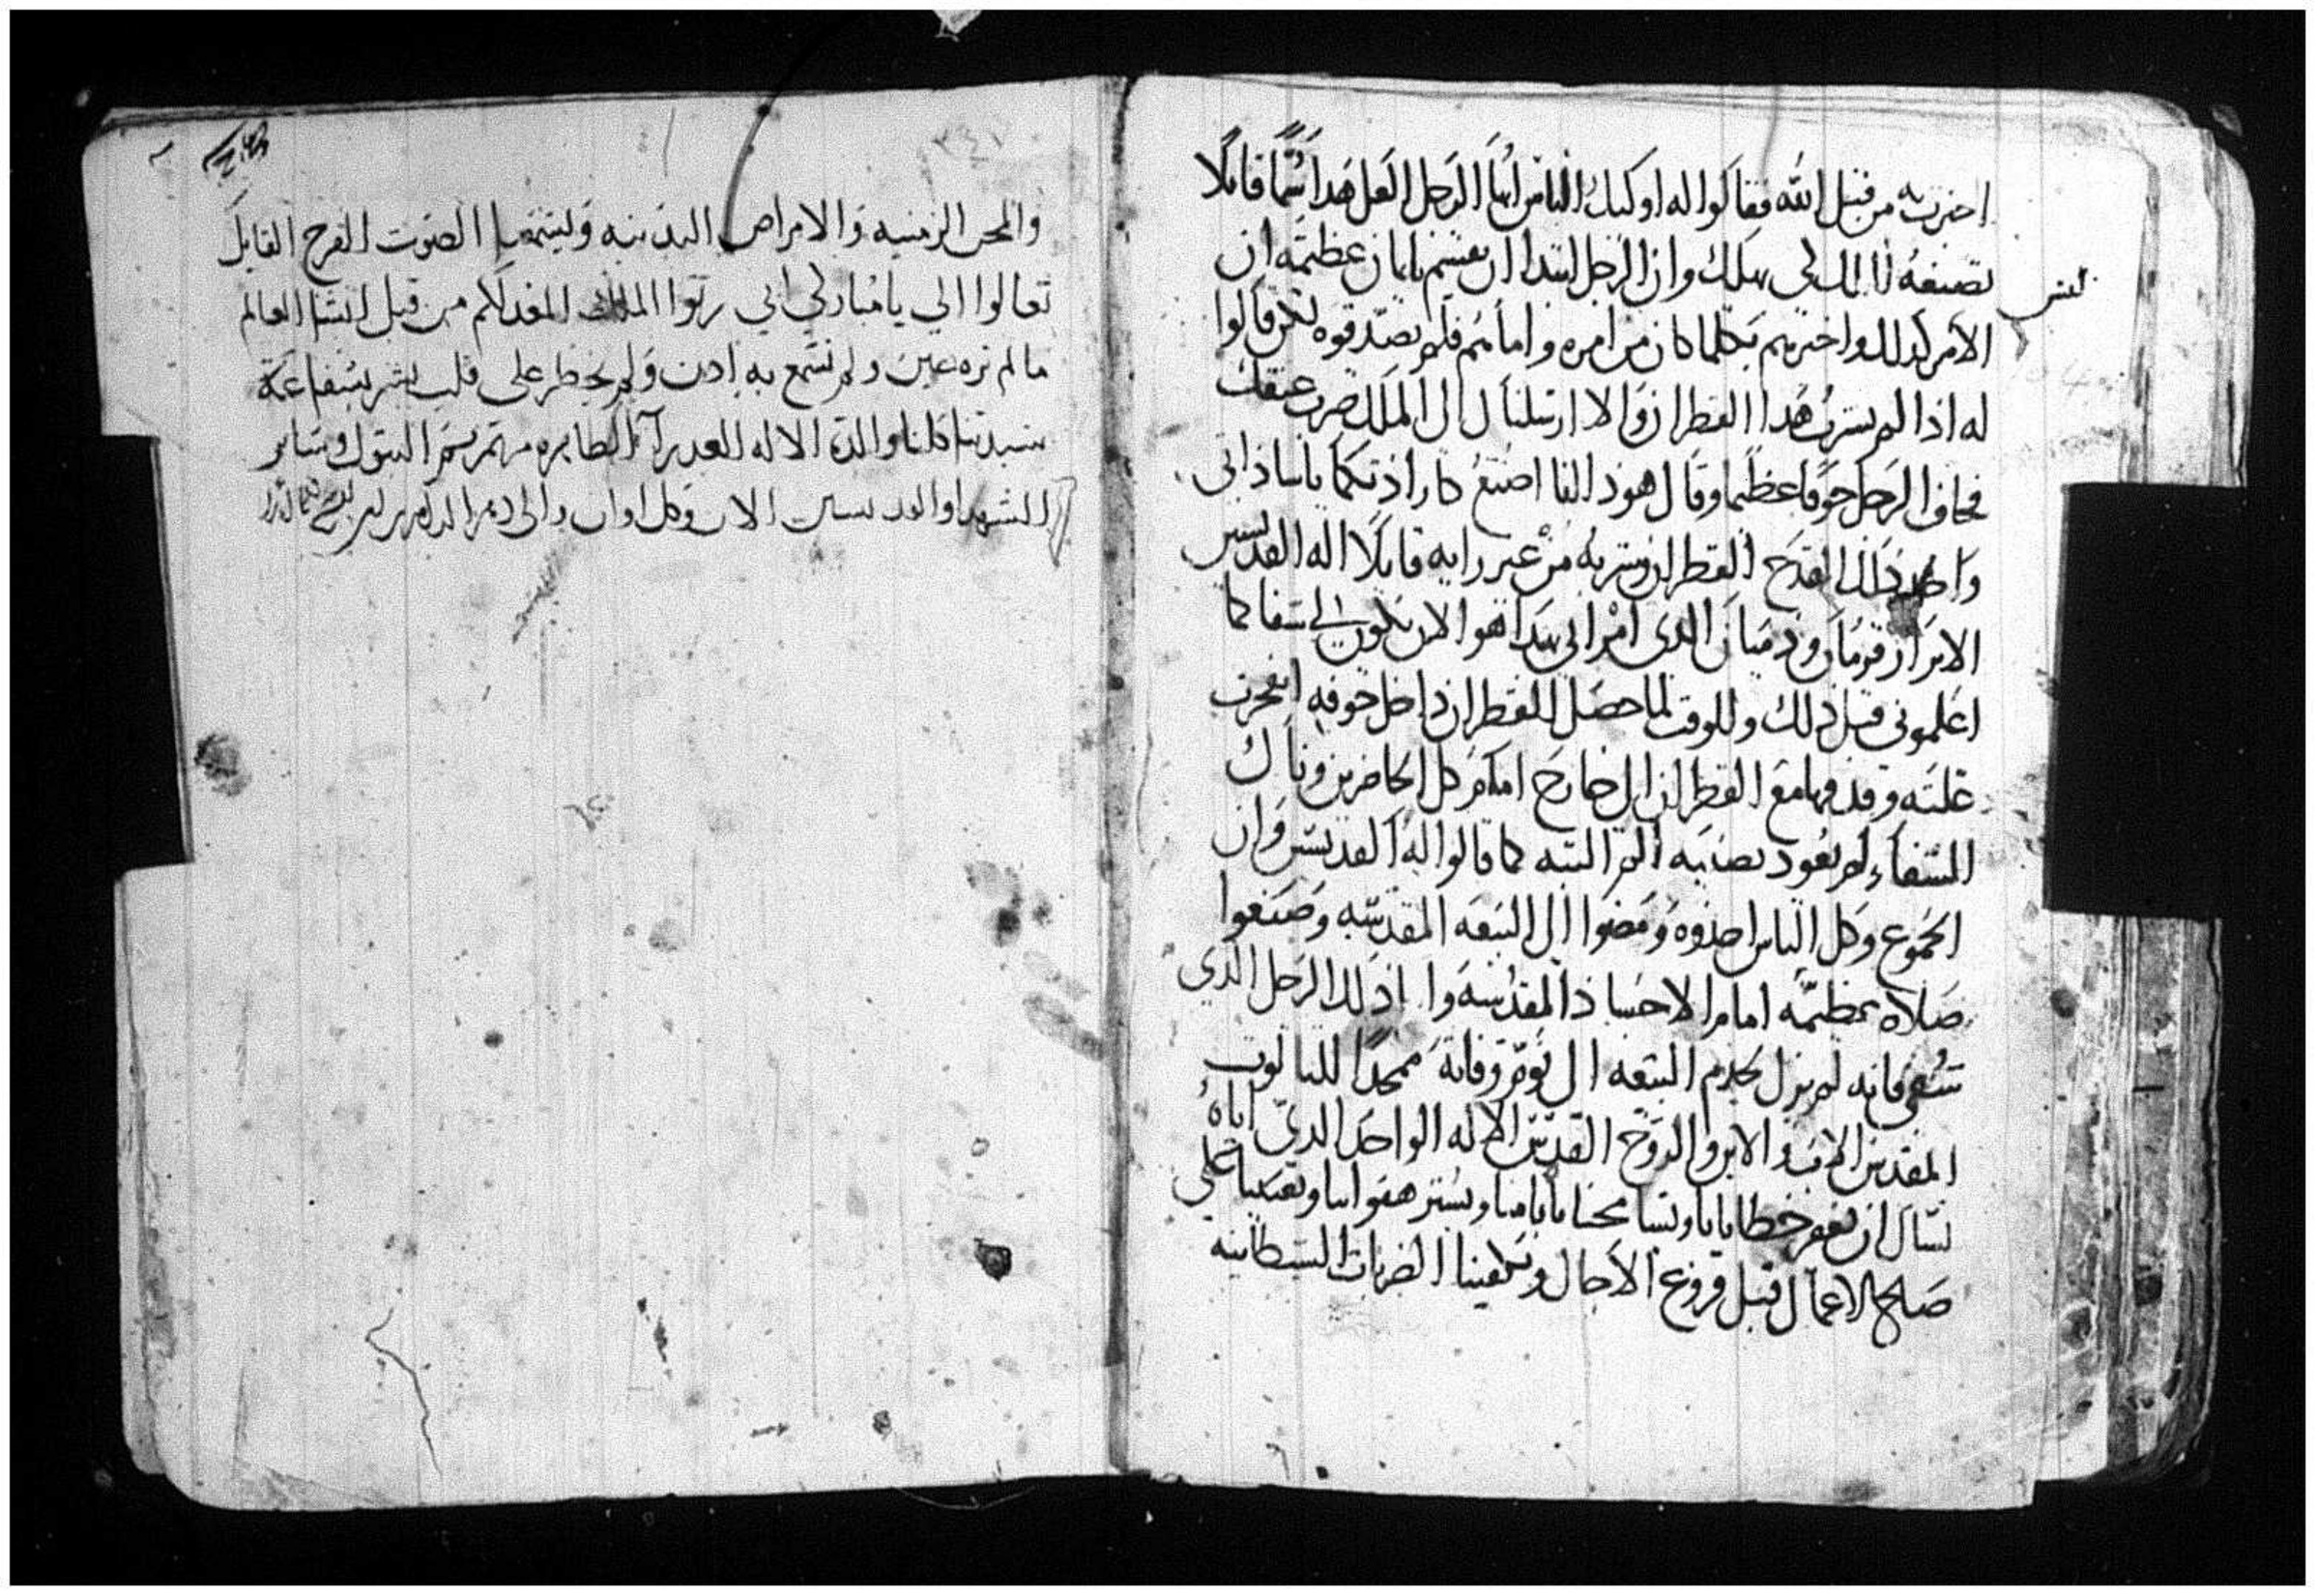 اخبرت به من قبل الله فقالوا له اوليك الناس ايها الرجل لعل هذا شيًا قايلًا
تصنعه لذلك لكي يهلك وان الرجل ابتدا ان يقسم بايمان عظيمه ان
ليس
الامر كذلك واخبرهم بكلما كان من امره واما هم فلم يصدقوه لكن قالوا
له اذا لم تشرب هذا القطران والا ارسلناك الى الملك ضرب عنقك
فخاف الرجل خوفًا عظيمًا وقال هوذا انا اصنع كارادتكما ياساداتي
واخذ ذلك القدح القطران وشربه من غير رايه قايلًا اله القديسين
الابرار قزمان ودميان الذي امراني بهذا هو الان يكون لي شفا كما
اعلموني قبل ذلك وللوقت لما حصل القطران داخل جوفه انفجرت
علته وقذفها مع القطران الى خارج امام كل الحاضرين ونال
الشفاء ولم يعود يصيبه الم البته كما قالوا له القديسين وان
الجموع وكل الناس اخذوه ومضوا الى البيعه المقدسه وصنعوا
صلاه عظيمه امام الاجساد المقدسه وان ذلك الرجل الذي
شفي فانه لم يزل يخدم البيعه الى يوم وفاته ممجدًا للثالوت
المقدس الاب والابن والروح القدس الاله الواحد الذي اياه
نسال ان يغفر خطايانا ويسامحنا باثامنا ويستر هفواتنا ويعيننا على
صالح الاعمال قبل فروغ الاجال ويكفينا الضربات الشيطانيه
والمحن الزمنيه والامراض البدنيه ويسمعنا الصوت الفرح القايل
تعالوا الي يا مباركي ابي رثوا الملك المعد لكم من قبل انشا العالم
ما لم تره عين ولم تسمع به ادن ولم يخطر على قلب بشر بشفاعة
سيدتنا كلنا والدة الاله العدرآء الطاهره مرتمريم البتول وساير
الشهدا والقديسين الان وكل اوان والى دهر الداهرين امين